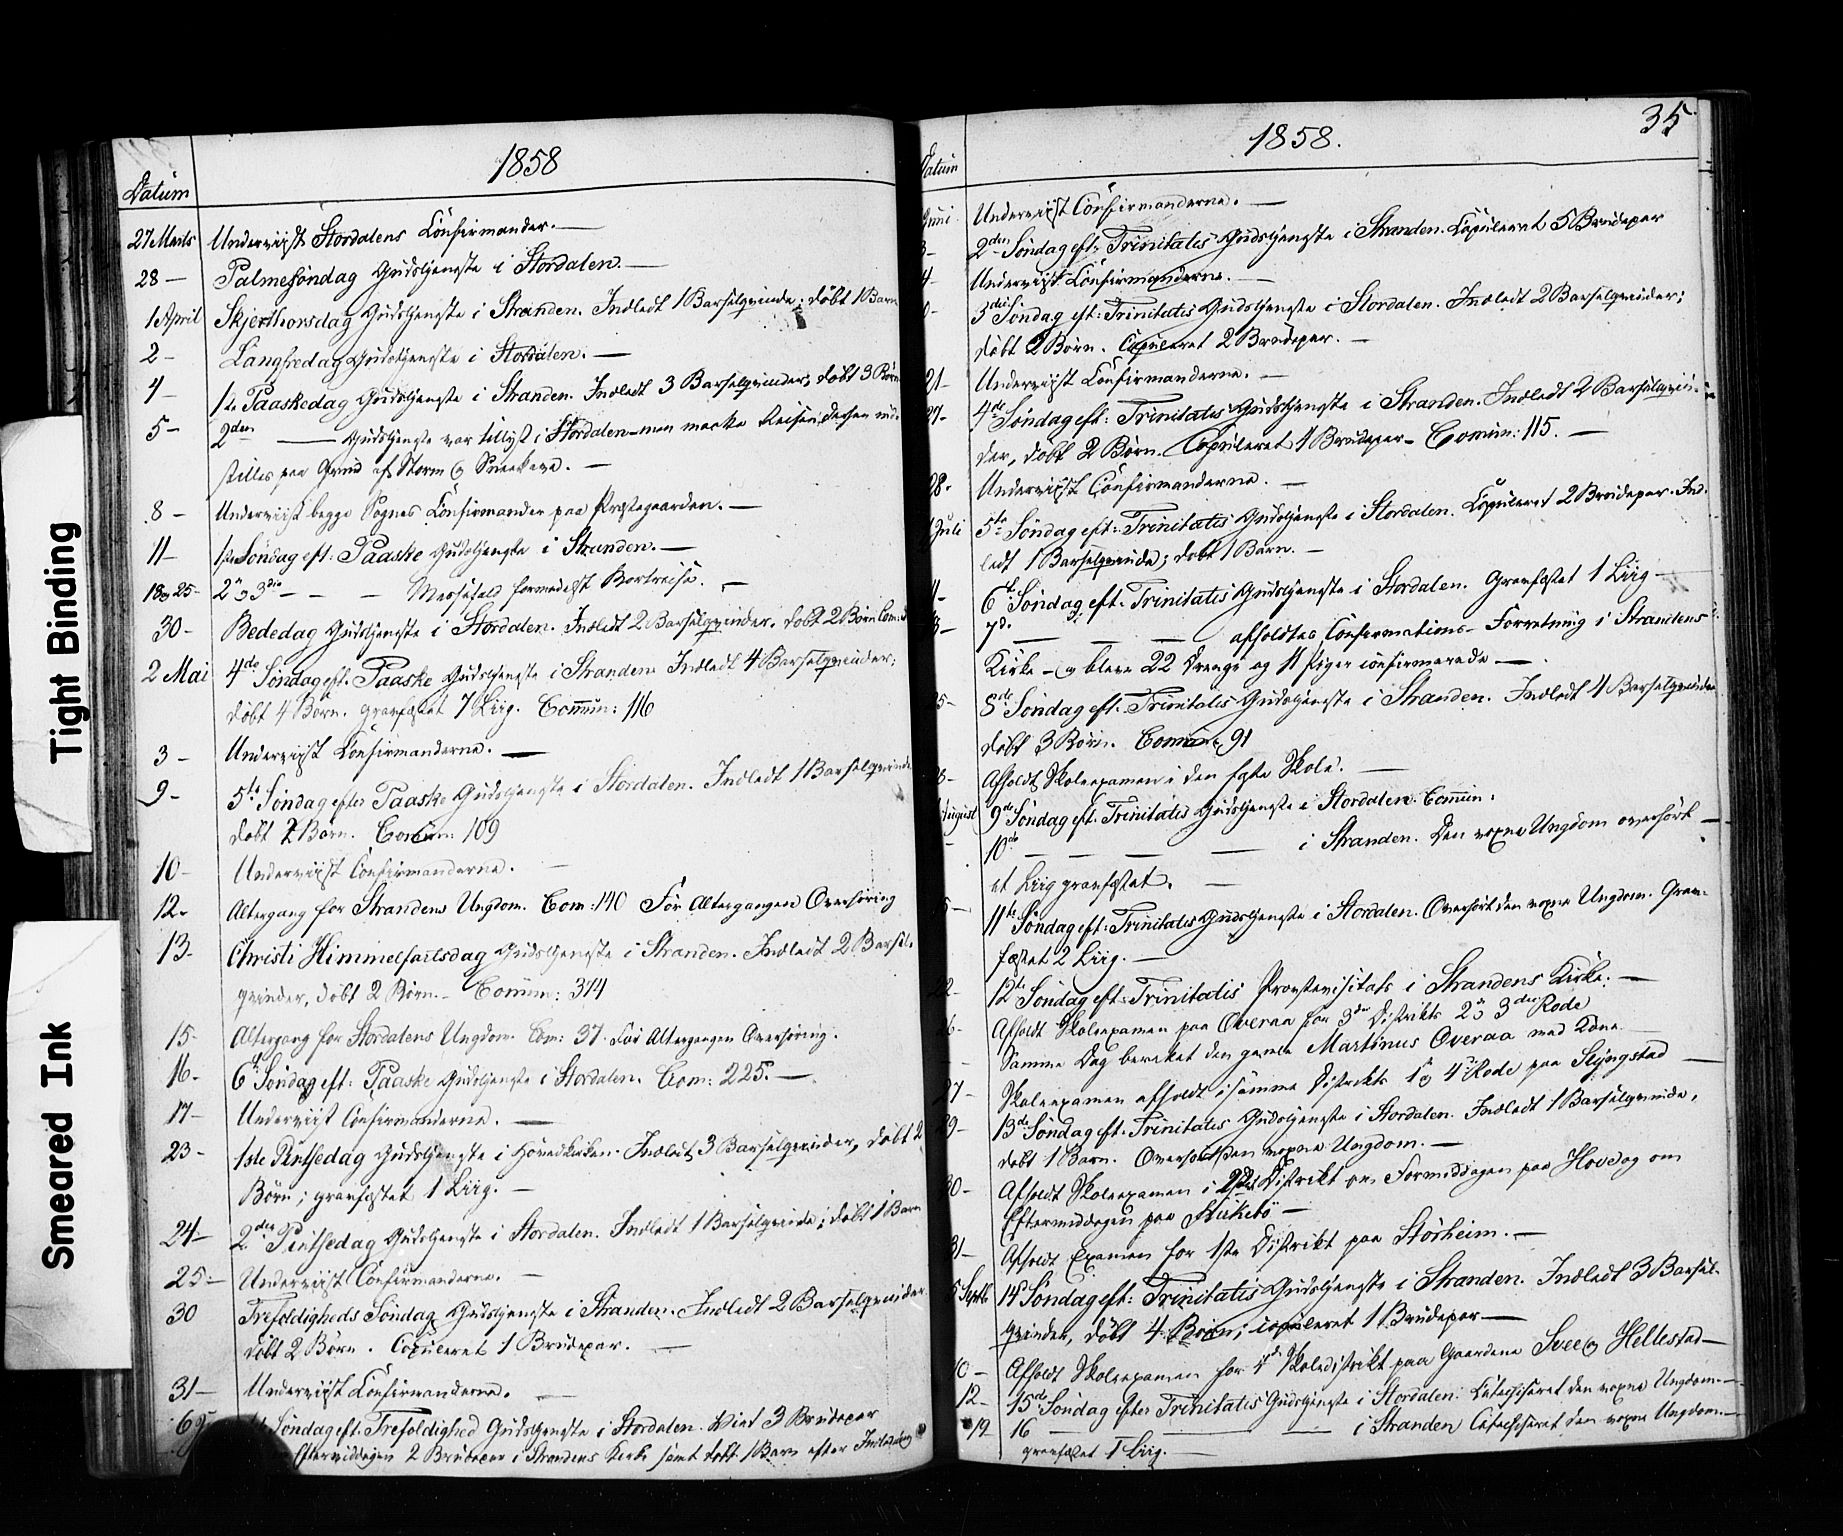 Tight Binding
Smeared Ink
1858
Datum
27 Marts Underviist Stordalens Confirmander. —
28 — Palmesøndag Gudstjeneste i Stordalen. —
1 April Skjerthorsdag Gudstjeneste i Stranden. Indledt 1 Barselqvinde; døbt 1 Barn
2 — Langfredag Gudstjeneste i Stordalen. —
4 — 1ste Paaskedag Gudstjeneste i Stranden. Indledt 3 Barselqvinder, døbt 3 Børn
5 — 2den — Gudstjeneste var tillyst i Stordalen — men maatte Reisen dersen ind-
stilles paa Grund af Storm og Sneekave. —
8 — Underviist begge Sognes Confirmander paa Præstegaarden. —
11 — 1ste Søndag eft: Paaske Gudstjeneste i Stranden. —
18 og 25 — 2d og 3die — — — Messefald formedelst Bortreise. —
30 — Bededag Gudstjeneste i Stordalen. Indledt 2 Barselqvinder, døbt 2 Børn Com:
2 Mai 4de Søndag eft: Paaske Gudstjeneste i Stranden Indledt 4 Barselqvinder;
døbt 4 Børn. gravfæstet 7 Liig. Commun: 116
3 — Underviist Confirmanderne. —
9 — 5te Søndag efter Paaske Gudstjeneste i Stordalen. Indledt 1 Barselqvinde
døbt 2 Børn. Commun: 109
10 — Underviist Confirmanderne. —
12 — Altergang for Strandens Ungdom. Com: 140 Før Altergangen Overhøring
13 — Christi Himmelfartsdag Gudstjeneste i Stranden. Indledt 2 Barsel-
qvinder, døbt 2 Børn. — Commun: 314
15 — Altergang for Stordalens Ungdom. Com: 37. Før Altergangen Overhøring.
16 — 6te Søndag eft: Paaske Gudstjeneste i Stordalen. Com: 225. —
17 — Underviist Confirmanderne. —
23 — 1ste Pintsedag Gudstjeneste i Hovedkirken. Indledt 3 Barselqvinder, døbt 2
Børn; gravfæstet 1 Liig. —
24 — 2den Pintsedag Gudstjeneste i Stordalen. Indledt 1 Barselqvinde; døbt 1 Barn
25 — Underviist Confirmanderne. —
30 Trefoldigheds Søndag Gudstjeneste i Stranden. Indledt 2 Barselqvinder
døbt 2 Børn. Copuleret 1 Brudepar. —
31 — Underviist Confirmanderne. —
6 Søndag eft: Trefoldighed Gudstjeneste i Stordalen. Viet 3 Brudepar
Eftermiddagen 2 Brudepar i Strandens Kirke samt døbt 1 Barn efter Indledning
35
1858.
Datum
Juni Underviist Confirmanderne. —
2den Søndag eft: Trinitatis Gudstjeneste i Stranden. Copuleret 5 Brudepar
4 — Underviist Confirmanderne. —
3die Søndag eft: Trinitatis Gudstjeneste i Stordalen. Indledt 2 Barselqvinder;
døbt 2 Børn. Copuleret 2 Brudepar. —
21 — Underviist Confirmanderne. —
27 — 4de Søndag eft: Trinitatis Gudstjeneste i Stranden. Indledt 2 Barselqvin-
der, døbt 2 Børn. Copuleret 4 Brudepar — Commun: 115. —
28 — Underviist Confirmanderne. —
Juli 5te Søndag eft: Trinitatis Gudstjeneste i Stordalen. Copuleret 2 Brudepar. Ind-
ledt 1 Barselqvinde; døbt 1 Barn. —
6te Søndag eft: Trinitatis Gudstjeneste i Stordalen. Gravfæstet 1 Liig —
7de — — — — afholdtes Confirmations-Forretning i Strandens
Kirke — og bleve 22 Drenge og 11 Piger confirmerede —
25 — 8de Søndag eft: Trinitatis Gudstjeneste i Stranden. Indledt 4 Barselqvinder
døbt 3 Børn. Commun: 91
Afholdt Skoleexamen i den faste Skole. —
August 9de Søndag eft: Trinitatis Gudstjeneste i Stordalen. Commun:
10de — — — — i Stranden. Den voxne Ungdom overhørt —
et Liig gravfæstet. —
11te Søndag eft: Trinitatis Gudstjeneste i Stordalen. Overhørt den voxne Ungdom. Grav-
fæstet 2 Liig. —
22 — 12te Søndag eft: Trinitatis Provstevisitats i Strandens Kirke. —
26 — Afholdt Skoleexamen paa Overaa for 3die Distrikts 2d og 3die Rode
Samme Dag berettet den gamle Martinus Overaa med Kone
27 — Skoleexamen afholdt i samme Distrikts 1ste og 4de Rode paa Slyngstad —
29 — 13de Søndag eft: Trinitatis Gudstjeneste i Stordalen. Indledt 1 Barselqvinde,
døbt 1 Barn. Overhørt den voxne Ungdom. —
30 — Afholdt Skoleexamen i 2det Distrikt om Formiddagen paa Hovdag om
Eftermiddagen paa Stukebø —
31 — Afholdt Examen for 1ste Distrikt paa Storheim. —
5 Septb 14de Søndag eft: Trinitatis Gudstjeneste i Stranden. Indledt 3 Barsel-
qvinder, døbt 4 Børn; copuleret 1 Brudepar —
10 — Afholdt Skoleexamen for 4de Skoledistrikt paa Gaardene Svee og Hellestad —
12 — 15de Søndag efter Trinitatis Gudstjeneste i Stordalen. Catechiseret den voxne Ungdom —
19 16 — — — — i Stranden Catechiseret den voxne Ungdom. —
gravfæstet 1 Liig. —